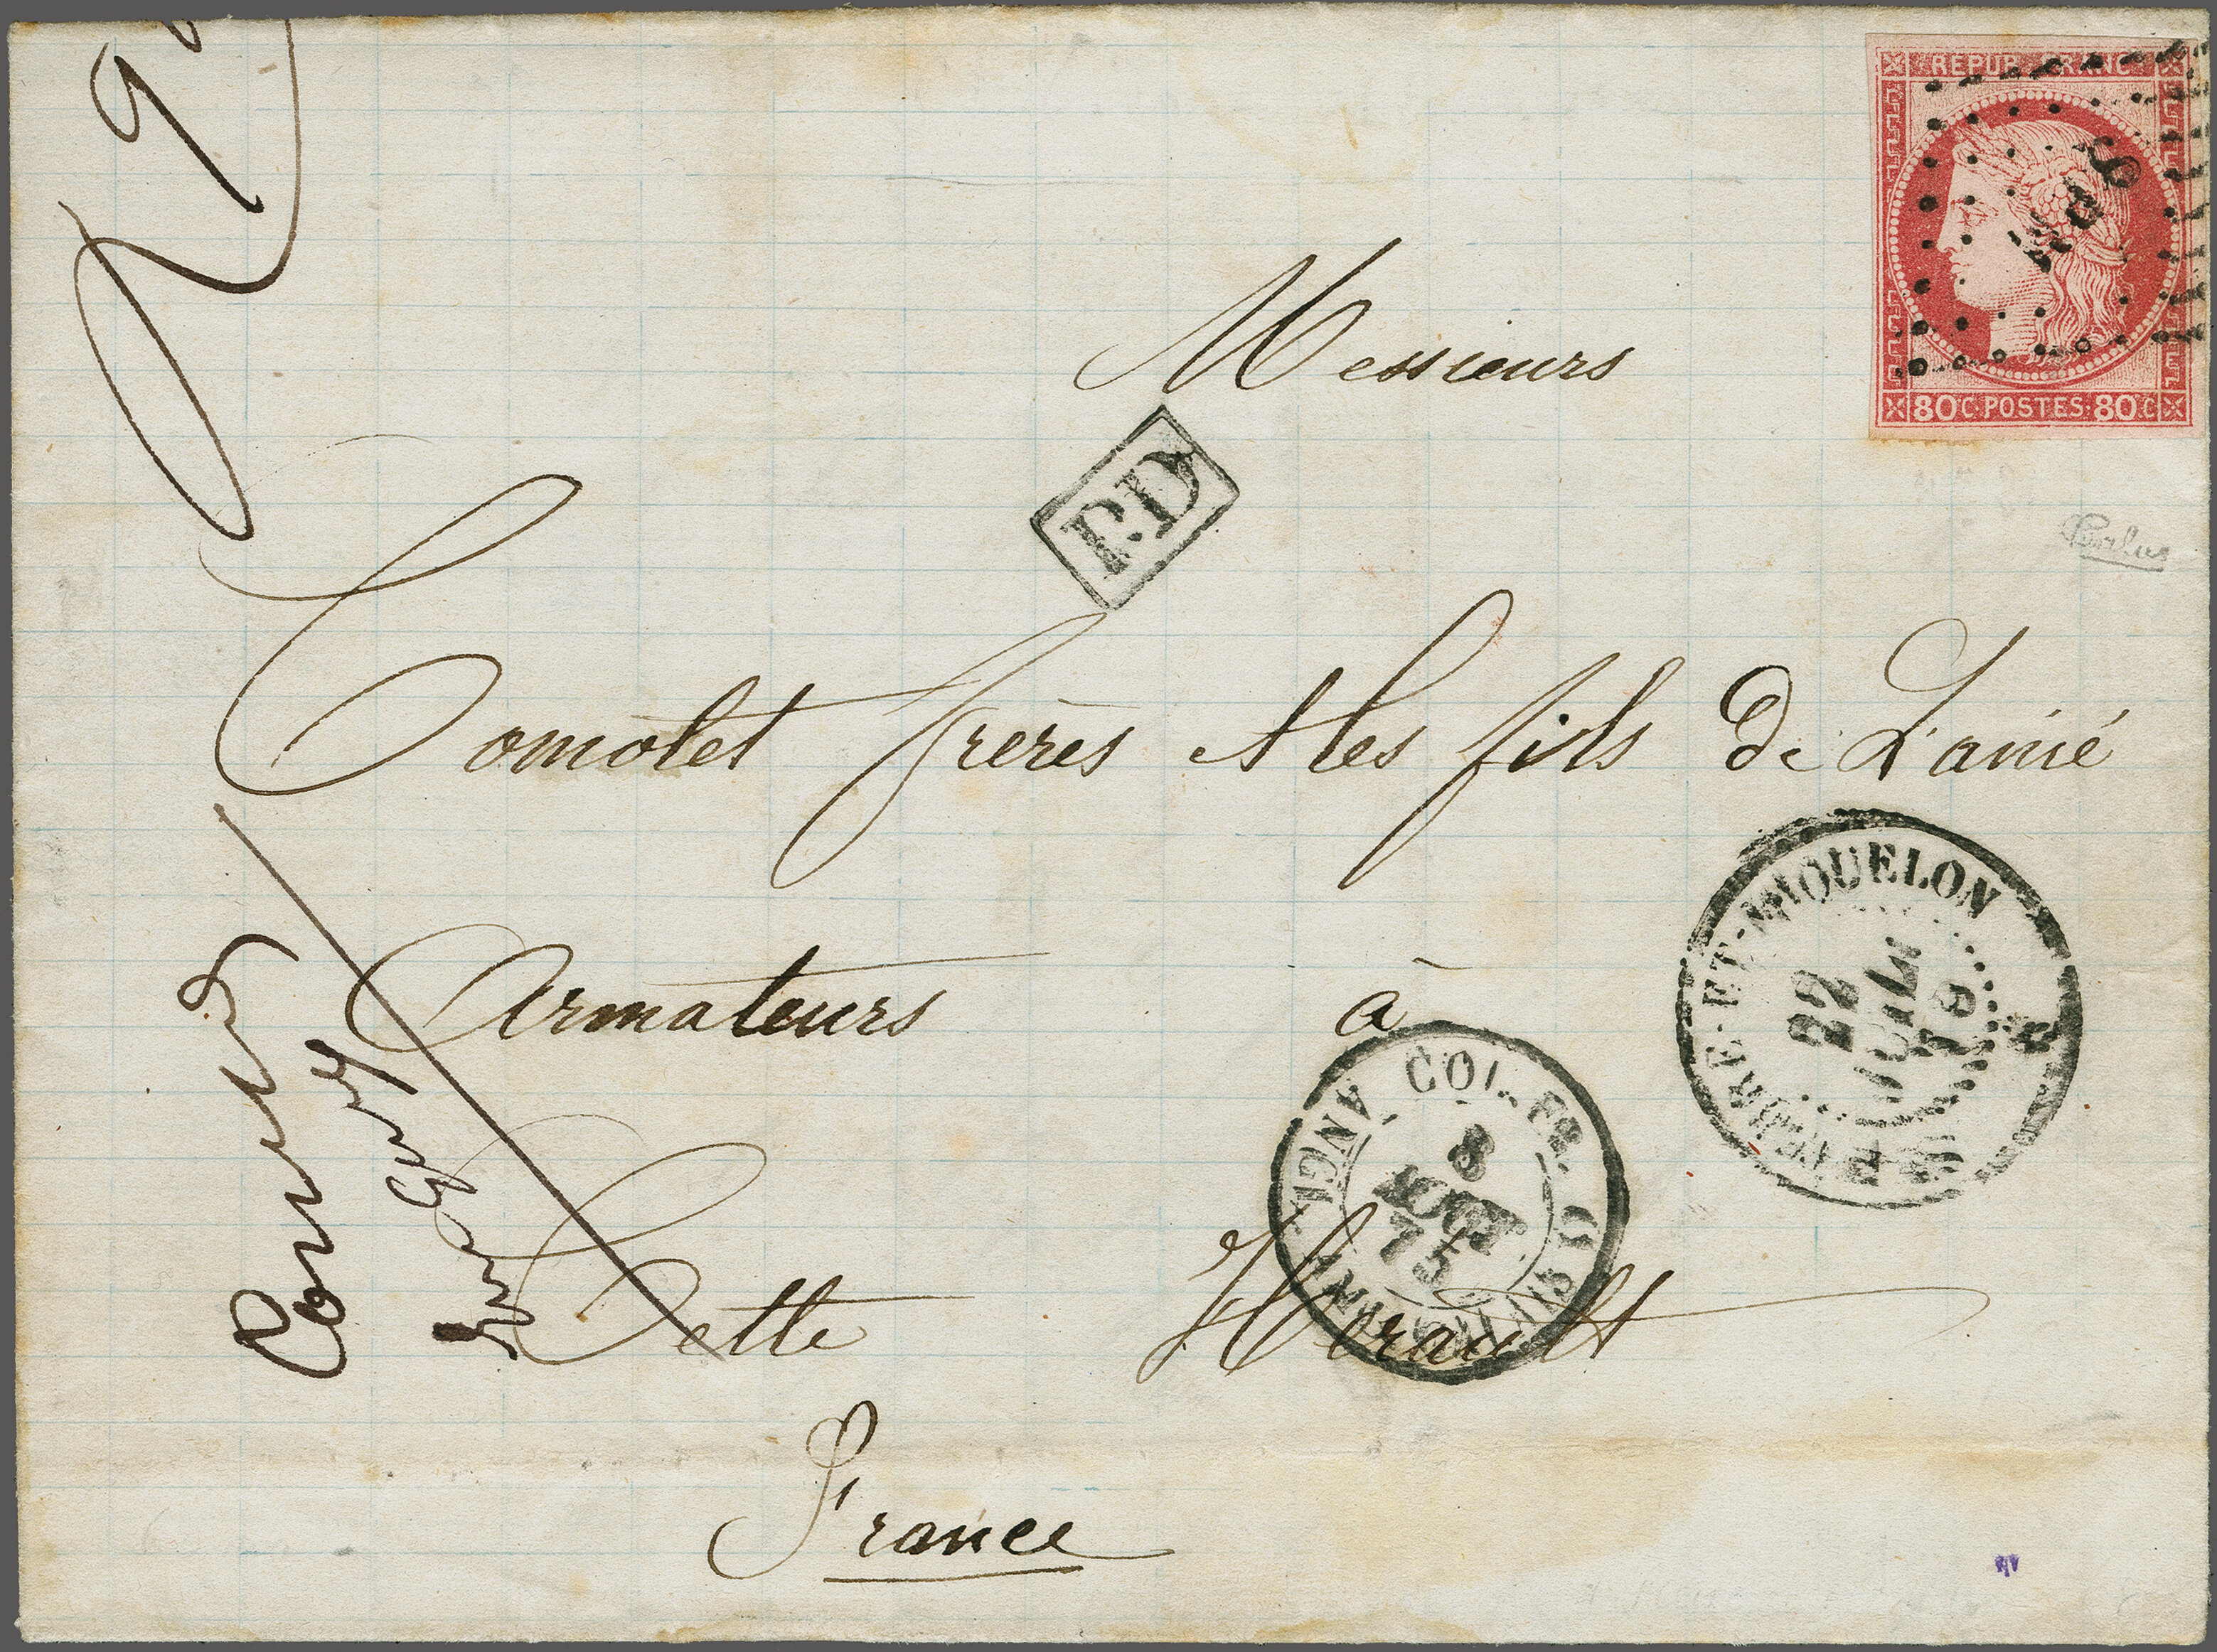 REPUB. FRANC.
80 C. POSTES. 80 C
Messieurs
P.D
Comolet frères et les fils de L'ainé
Armateurs à
Cette Hérault
France
PIERRE-ET-MIQUELON
22
JUIL
COL. FR. ANGL.
8
AOUT
75